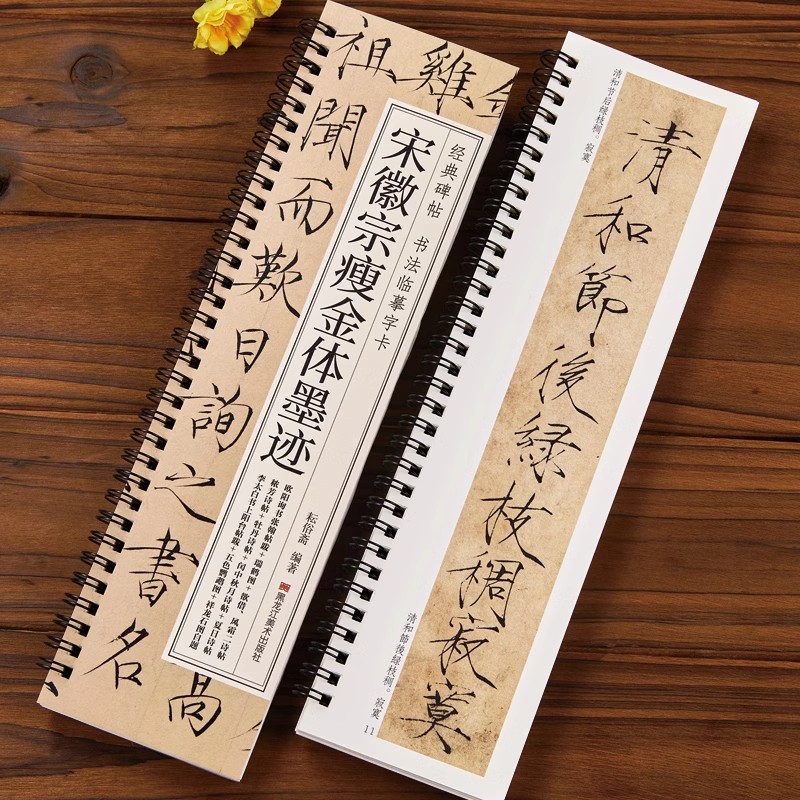 雞
祖聞而歎曰詢之書名
高
经典碑帖 书法临摹字卡
宋徽宗瘦金体墨迹
欧阳询书张翰帖跋+瑞鹤图+欲借、风霜二诗帖
秾芳诗帖+牡丹诗帖+闰中秋月诗帖+夏日诗帖
李太白书上阳台帖跋+五色鹦鹉图+祥龙石图自题
耘俗斋 编著
黑龙江美术出版社
清和节后绿枝稠。寂寞
清和節後緑枝稠寂寞
清和節後緑枝稠。寂寞
11